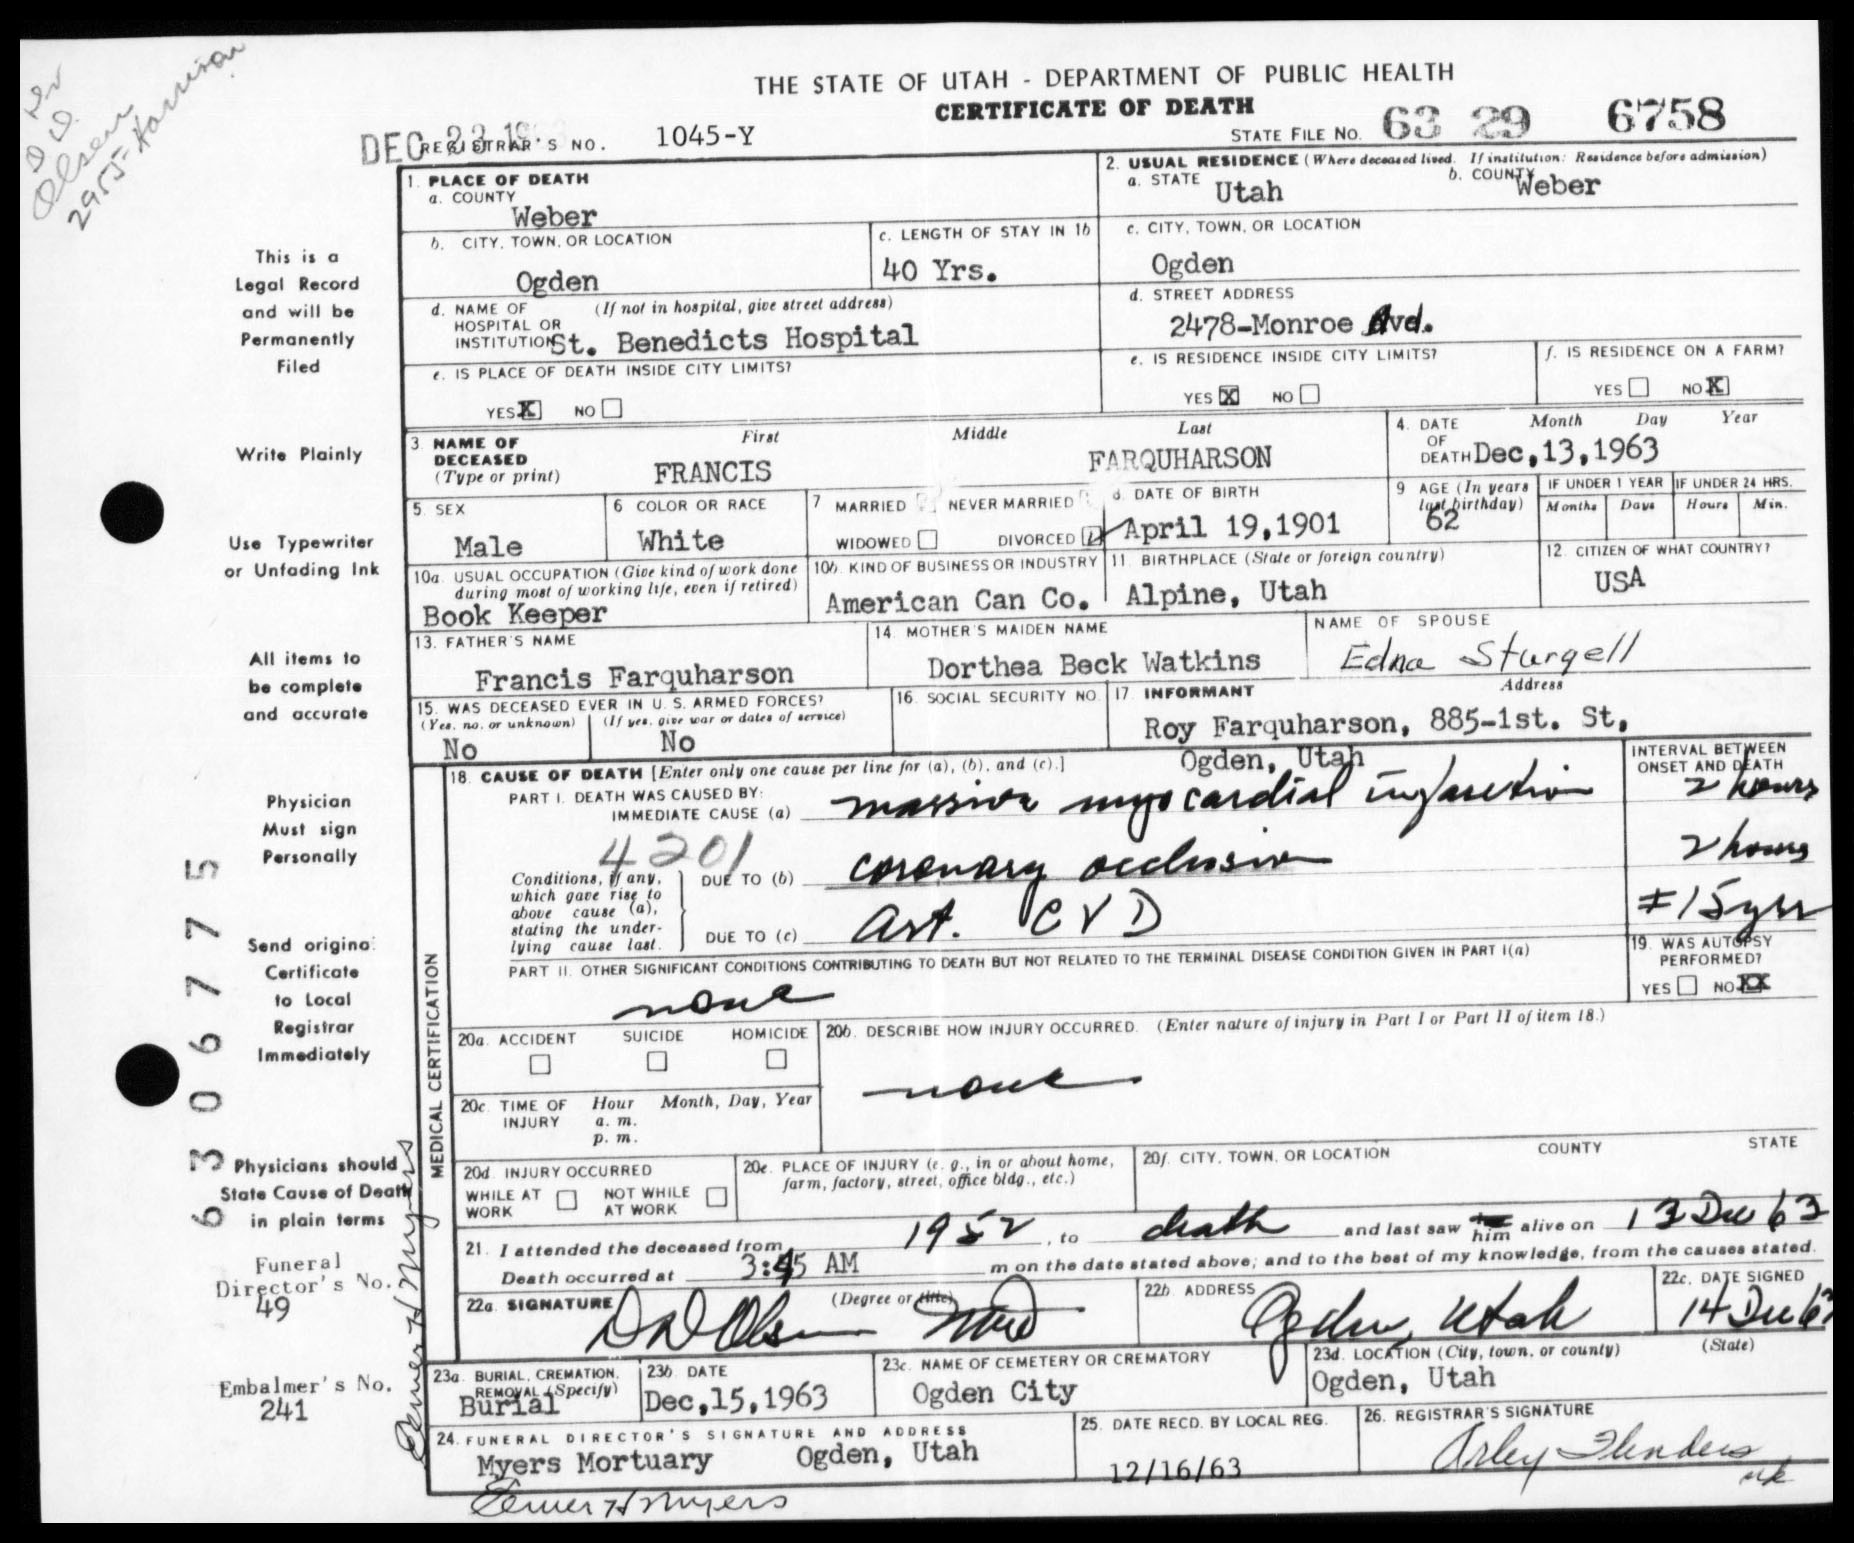 Dr
D D.
Olsen
2955-Harrison
THE STATE OF UTAH - DEPARTMENT OF PUBLIC HEALTH
CERTIFICATE OF DEATH
DEC 23 1963
REGISTRAR'S NO. 1045-Y
STATE FILE NO. 63 29 6758
1. PLACE OF DEATH
a. COUNTY
Weber
2. USUAL RESIDENCE (Where deceased lived. If institution: Residence before admission)
a. STATE Utah
b. COUNTY Weber
b. CITY, TOWN, OR LOCATION
Ogden
c. LENGTH OF STAY IN 1b
40 Yrs.
c. CITY, TOWN, OR LOCATION
Ogden
d. NAME OF (If not in hospital, give street address)
HOSPITAL OR
INSTITUTION St. Benedicts Hospital
d. STREET ADDRESS
2478-Monroe Avd.
e. IS PLACE OF DEATH INSIDE CITY LIMITS?
YES X NO
e. IS RESIDENCE INSIDE CITY LIMITS?
YES X NO
f. IS RESIDENCE ON A FARM?
YES NO X
3. NAME OF
DECEASED
(Type or print)
First Middle Last
FRANCIS FARQUHARSON
4. DATE Month Day Year
OF
DEATH Dec,13,1963
5. SEX
Male
6 COLOR OR RACE
White
7 MARRIED NEVER MARRIED
WIDOWED DIVORCED
8. DATE OF BIRTH
April 19,1901
9 AGE (In years
last birthday)
62
IF UNDER 1 YEAR
Months Days
IF UNDER 24 HRS.
Hours Min.
10a. USUAL OCCUPATION (Give kind of work done
during most of working life, even if retired)
Book Keeper
10b. KIND OF BUSINESS OR INDUSTRY
American Can Co.
11. BIRTHPLACE (State or foreign country)
Alpine, Utah
12. CITIZEN OF WHAT COUNTRY?
USA
13. FATHER'S NAME
Francis Farquharson
14. MOTHER'S MAIDEN NAME
Dorthea Beck Watkins
NAME OF SPOUSE
Edna Sturgell
15. WAS DECEASED EVER IN U. S. ARMED FORCES?
(Yes, no, or unknown) (If yes, give war or dates of service)
No No
16. SOCIAL SECURITY NO.
17. INFORMANT Address
Roy Farquharson, 885-1st. St,
Ogden, Utah
MEDICAL CERTIFICATION
18. CAUSE OF DEATH [Enter only one cause per line for (a), (b), and (c).]
INTERVAL BETWEEN
ONSET AND DEATH
PART I. DEATH WAS CAUSED BY:
IMMEDIATE CAUSE (a) massive myocardial infarction 2 hours
4201
Conditions, if any,
which gave rise to
above cause (a),
stating the under-
lying cause last.
DUE TO (b) coronary occlusion 2 hours
DUE TO (c) Art. CVD ± 15 yrs
PART II. OTHER SIGNIFICANT CONDITIONS CONTRIBUTING TO DEATH BUT NOT RELATED TO THE TERMINAL DISEASE CONDITION GIVEN IN PART I(a)
none
19. WAS AUTOPSY
PERFORMED?
YES NO XX
20a. ACCIDENT SUICIDE HOMICIDE
20b. DESCRIBE HOW INJURY OCCURRED. (Enter nature of injury in Part I or Part II of item 18.)
none
20c. TIME OF Hour Month, Day, Year
INJURY a. m.
p. m.
20d. INJURY OCCURRED
WHILE AT WORK NOT WHILE AT WORK
20e. PLACE OF INJURY (e. g., in or about home,
farm, factory, street, office bldg., etc.)
20f. CITY, TOWN, OR LOCATION COUNTY STATE
21. I attended the deceased from 1952, to death and last saw him alive on 13 Dec 63
Death occurred at 3:45 AM m on the date stated above; and to the best of my knowledge, from the causes stated.
22a. SIGNATURE (Degree or title)
D W Olsen MD
22b. ADDRESS
Ogden, Utah
22c. DATE SIGNED
14 Dec 63
23a. BURIAL, CREMATION,
REMOVAL (Specify)
Burial
23b. DATE
Dec,15,1963
23c. NAME OF CEMETERY OR CREMATORY
Ogden City
23d. LOCATION (City, town, or county) (State)
Ogden, Utah
24. FUNERAL DIRECTOR'S SIGNATURE AND ADDRESS
Myers Mortuary Ogden, Utah
Elmer H Myers
25. DATE RECD. BY LOCAL REG.
12/16/63
26. REGISTRAR'S SIGNATURE
Arley Flinders
mk
This is a
Legal Record
and will be
Permanently
Filed
Write Plainly
Use Typewriter
or Unfading Ink
All items to
be complete
and accurate
Physician
Must sign
Personally
Send original
Certificate
to Local
Registrar
Immediately
Physicians should
State Cause of Death
in plain terms
Funeral
Director's No.
49
Embalmer's No.
241
Elmer H Myers
6306775